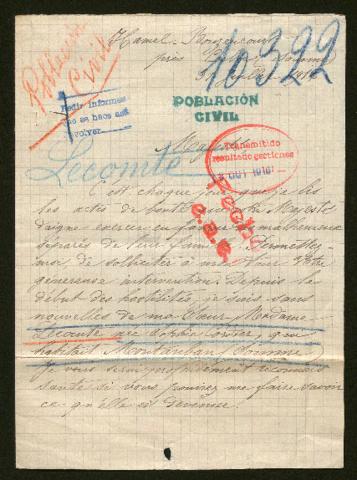 Hamel-Bouzencourt
près
10322
Población
Civil
Pedir informes
no se hace así
volver
POBLACIÓN
CIVIL
Transmitido
resultado gestiones
OCT 1916
Majesté
Lecomte
Fecha
C'est chaque jour que je lis
les actes de bonté que votre Majesté
daigne exercer en faveur de malheureux
séparés de leur famille. Permettez-
moi de solliciter à mon tour Votre
généreuse intervention. Depuis le
début des hostilités, je suis sans
nouvelles de ma sœur Madame
Lecomte née Sophie, qui
habitait Montauban (Somme)
Je vous serai profondément reconnais
santé si vous pouviez me faire savoir
ce qu'elle est devenue.